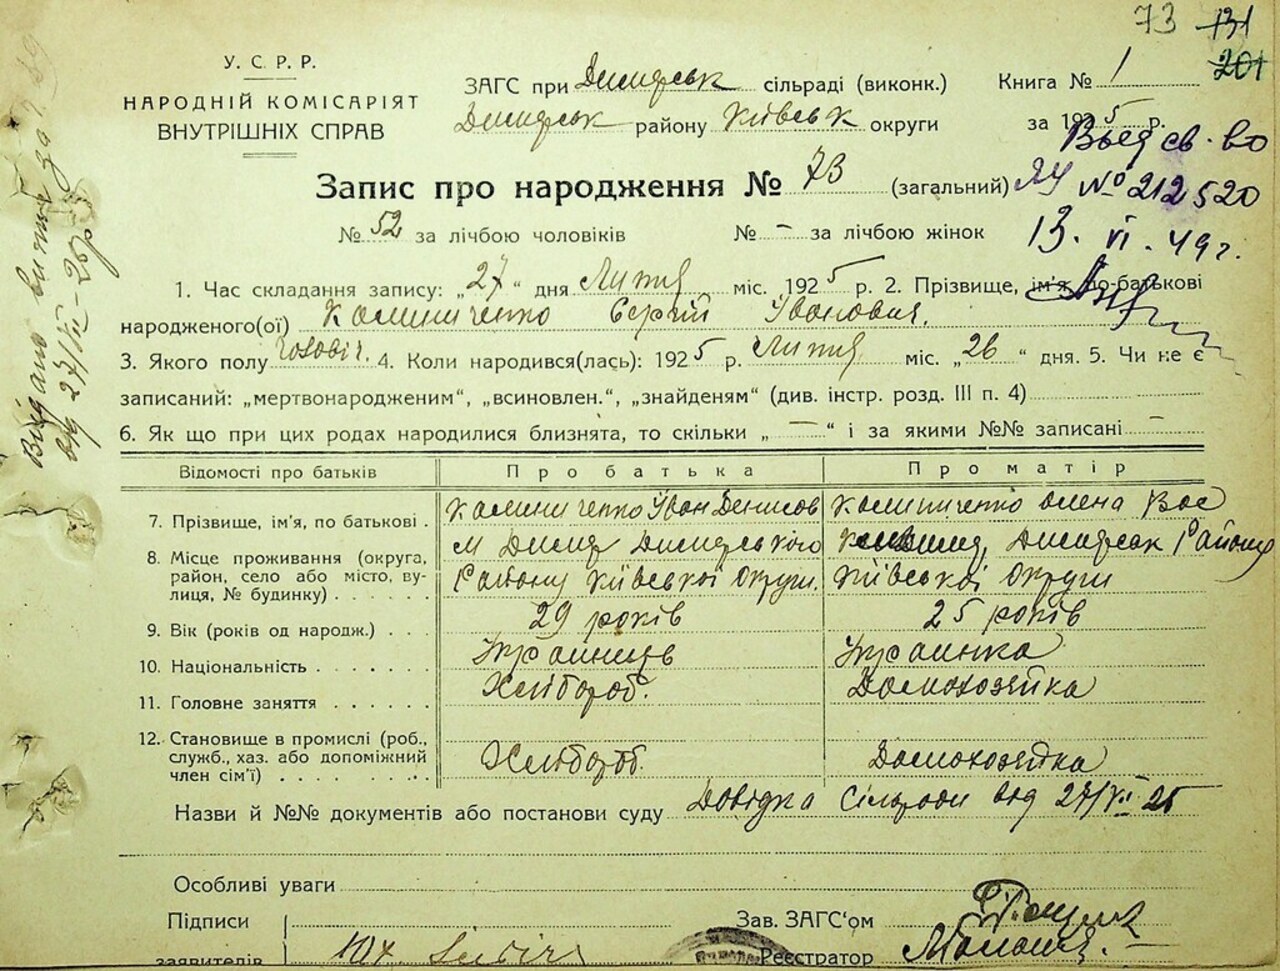 73 131
201
У. С. Р. Р.
НАРОДНІЙ КОМІСАРІЯТ
ВНУТРІШНІХ СПРАВ
ЗАГС при Димерськ сільраді (виконк.)
Димерськ району Київськ округи
Книга № 1
за 1925 р.
Выд св-во
ЯУ № 212520
13. VI. 49 г.
Запис про народження № 73 (загальний)
№ 52 за лічбою чоловіків № – за лічбою жінок
1. Час складання запису: „27“ дня Липня міс. 1925 р. 2. Прізвище, ім'я по-батькові
народженого(ої) Калиниченко Сергій Іванович.
3. Якого полу чоловіч. 4. Коли народився(лась): 1925 р. Липня міс. „26“ дня. 5. Чи не є
записаний: „мертвонародженим“, „всиновлен.“, „знайденям“ (див. інстр. розд. III п. 4)
6. Як що при цих родах народилися близнята, то скільки „—“ і за якими №№ записані —
Відомості про батьків Про батька Про матір
7. Прізвище, ім'я, по батькові . Калиниченко Іван Денисов Калиниченко Олена Вас
8. Місце проживання (округа, м Димер Димерського Димерськ Району
район, село або місто, ву- Району Київської Округи. Київської Округи
лиця, № будинку) . . . . . .
9. Вік (років од народж.) . . . 29 років 25 років
10. Національність . . . . . . . Українець Українка
11. Головне заняття . . . . . . Хлібороб. Домохозяйка
12. Становище в промислі (роб.,
служб., хаз. або допоміжний Хлібороб. Домохозяйка
член сім'ї) . . . . . . . . .
Назви й №№ документів або постанови суду Довідка Сільради від 27/VII 25
Особливі уваги
Підписи Зав. ЗАГС'ом
заявителів Реєстратор
Видано витяг за № 89
від 27/VII – 25 р